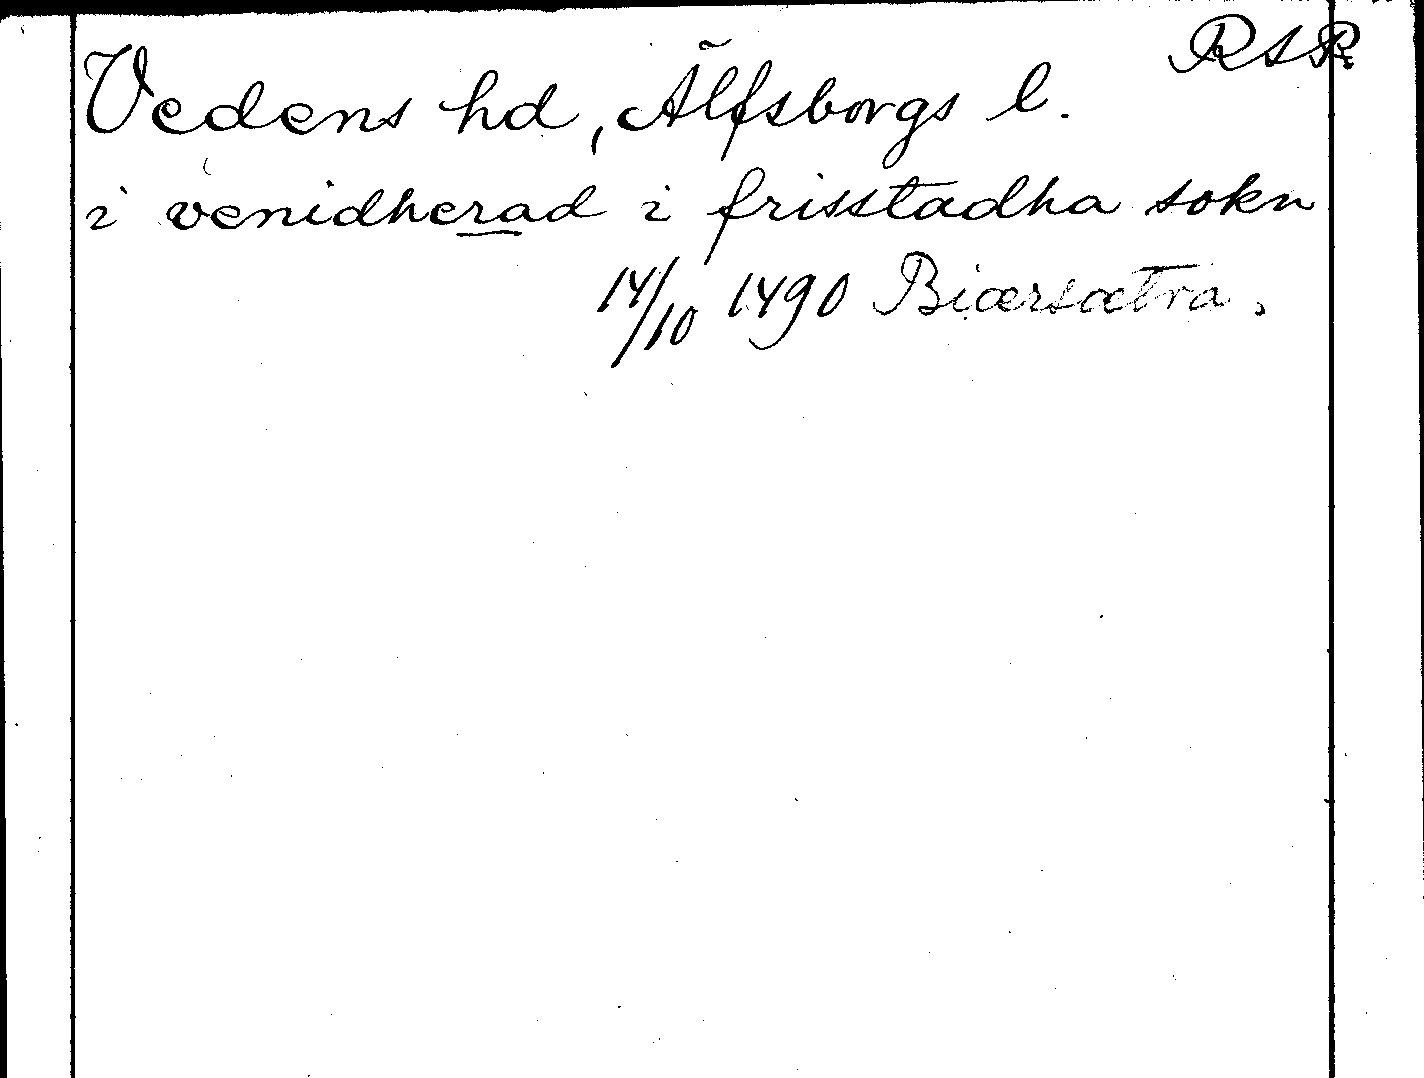 RAP
Vedens hd, Älfsborgs l.
i venidherad i frisstadha sokn
14/10 1490 Biærsætra.